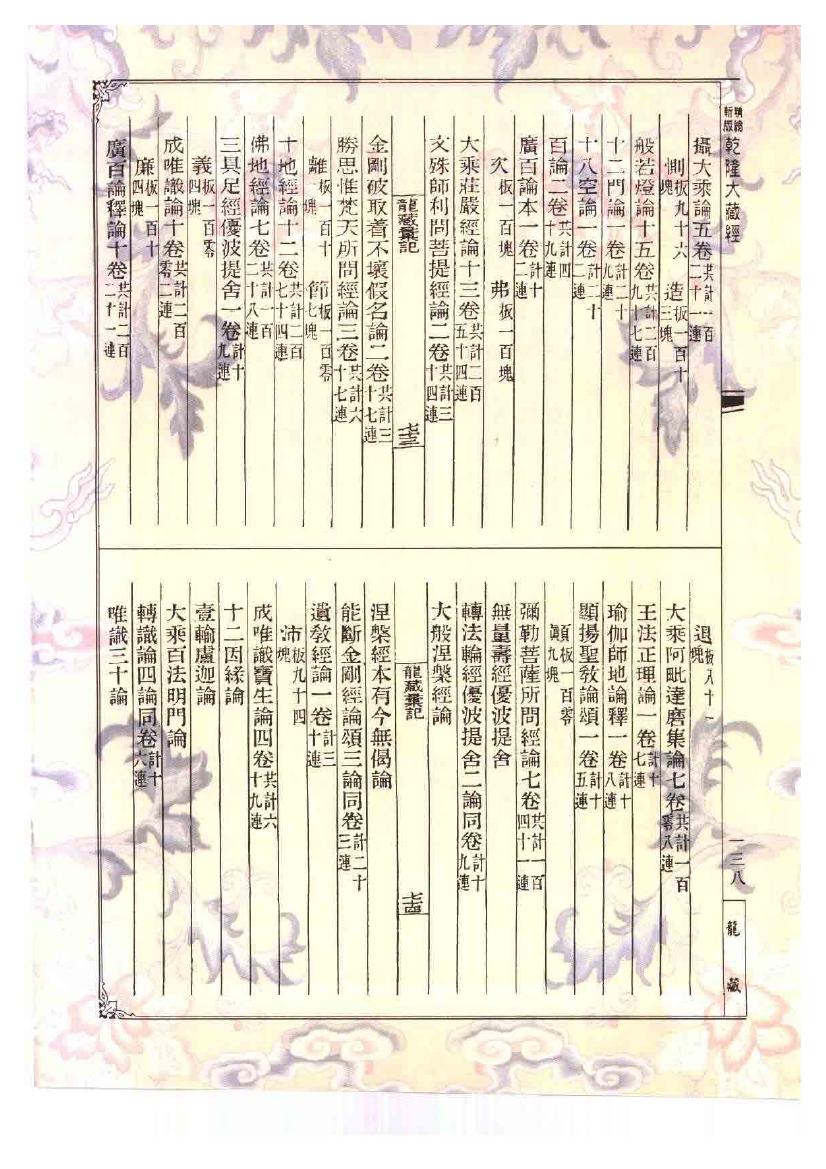 精縮新版 乾隆大藏經
攝大乘論五卷共計一百二十一連
惻板九十六塊 造板一百十三塊
般若燈論十五卷共計二百九十七連
十二門論一卷計二十九連
十八空論一卷計二十二連
百論二卷共計四十九連
廣百論本一卷計十二連
次板一百塊 弗板一百塊
大乘莊嚴經論十三卷共計二百五十四連
文殊師利問菩提經論二卷共計三十四連
龍藏彙記 七十三
金剛破取着不壞假名論二卷共計三十七連
勝思惟梵天所問經論三卷共計六十七連
離板一百十一塊 節板一百零七塊
十地經論十二卷共計二百七十四連
佛地經論七卷共計一百二十八連
三具足經優波提舍一卷計十九連
義板一百零四塊
成唯識論十卷共計二百零二連
廉板一百十四塊
廣百論釋論十卷共計二百二十一連
退板八十一塊
大乘阿毗達磨集論七卷共計一百零八連
王法正理論一卷計十七連
瑜伽師地論釋一卷計十八連
顯揚聖教論頌一卷計十五連
顛板一百零九塊
彌勒菩薩所問經論七卷共計一百四十一連
無量壽經優波提舍
轉法輪經優波提舍二論同卷計十九連
大般涅槃經論
龍藏彙記 七十四
涅槃經本有今無偈論
能斷金剛經論頌三論同卷計二十三連
遺教經論一卷計三十連
沛板九十四塊
成唯識寶生論四卷共計六十九連
十二因緣論
壹輸盧迦論
大乘百法明門論
轉識論四論同卷計十六連
唯識三十論
一三八
龍藏